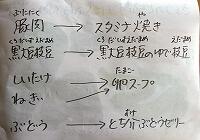 ぶたにく
豚肉 → スタミナ焼き
くろだいずえだまめ くろだいずえだまめ えだまめ
黒大豆枝豆 → 黒大豆枝豆のゆで枝豆
しいたけ たまご
ねぎ → 卵スープ
ぶどう → とち介ぶどうゼリー